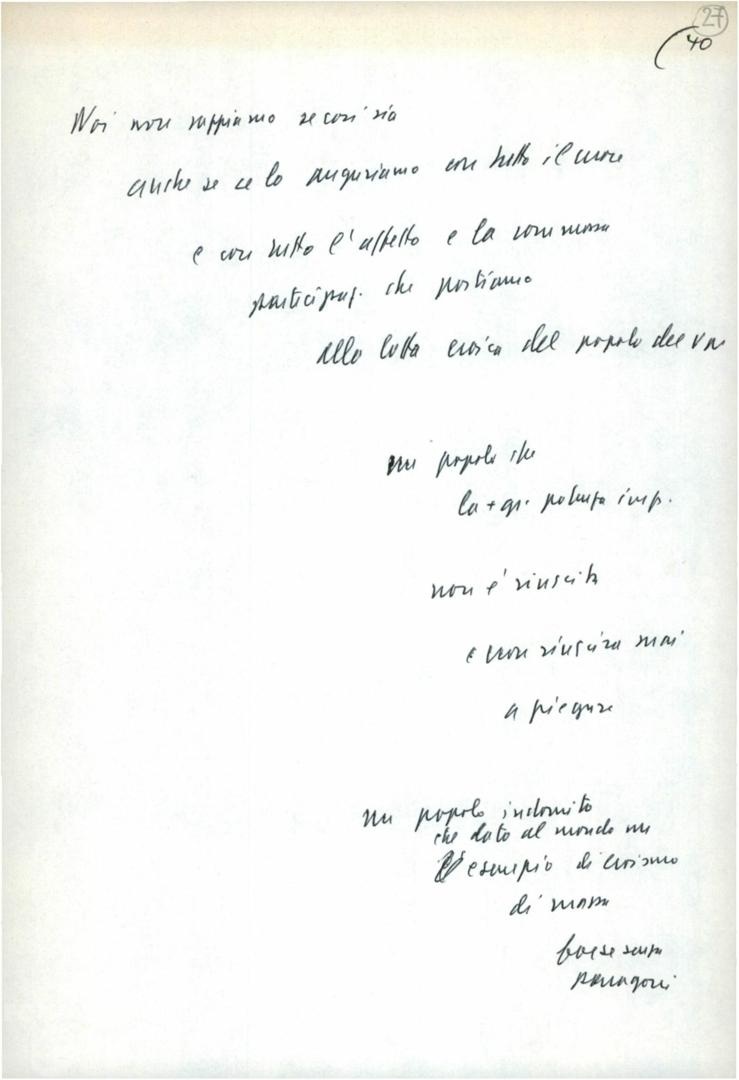 27
40
Noi non sappiamo se così sia
anche se ce lo auguriamo con tutto il cuore
e con tutto l'affetto e la commossa
partecipaz. che portiamo
alla lotta eroica del popolo del VN
un popolo che
la + gr. potenza imp.
non è riuscita
e non riuscirà mai
a piegare
un popolo indomito
che dato al mondo un
esempio di eroismo
di massa
forse senza
paragoni